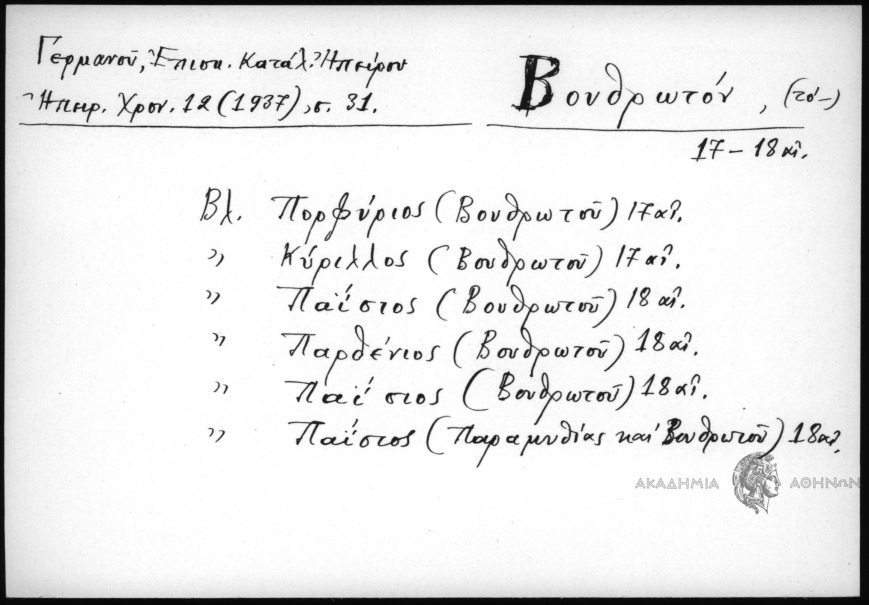 Γερμανοῦ, Ἐπισκ. Κατάλ. Ἠπείρου
Ἠπειρ. Χρον. 12 (1937), σ. 31.
Βουθρωτόν, (τό-)
17 - 18 αἰ.
Βλ. Πορφύριος (Βουθρωτοῦ) 17 αἰ.
" Κύριλλος (Βουθρωτοῦ) 17 αἰ.
" Παΐσιος (Βουθρωτοῦ) 18 αἰ.
" Παρθένιος (Βουθρωτοῦ) 18 αἰ.
" Παΐσιος (Βουθρωτοῦ) 18 αἰ.
" Παΐσιος (Παραμυθίας καί Βουθρωτοῦ) 18 αἰ.
ΑΚΑΔΗΜΙΑ ΑΘΗΝΩΝ